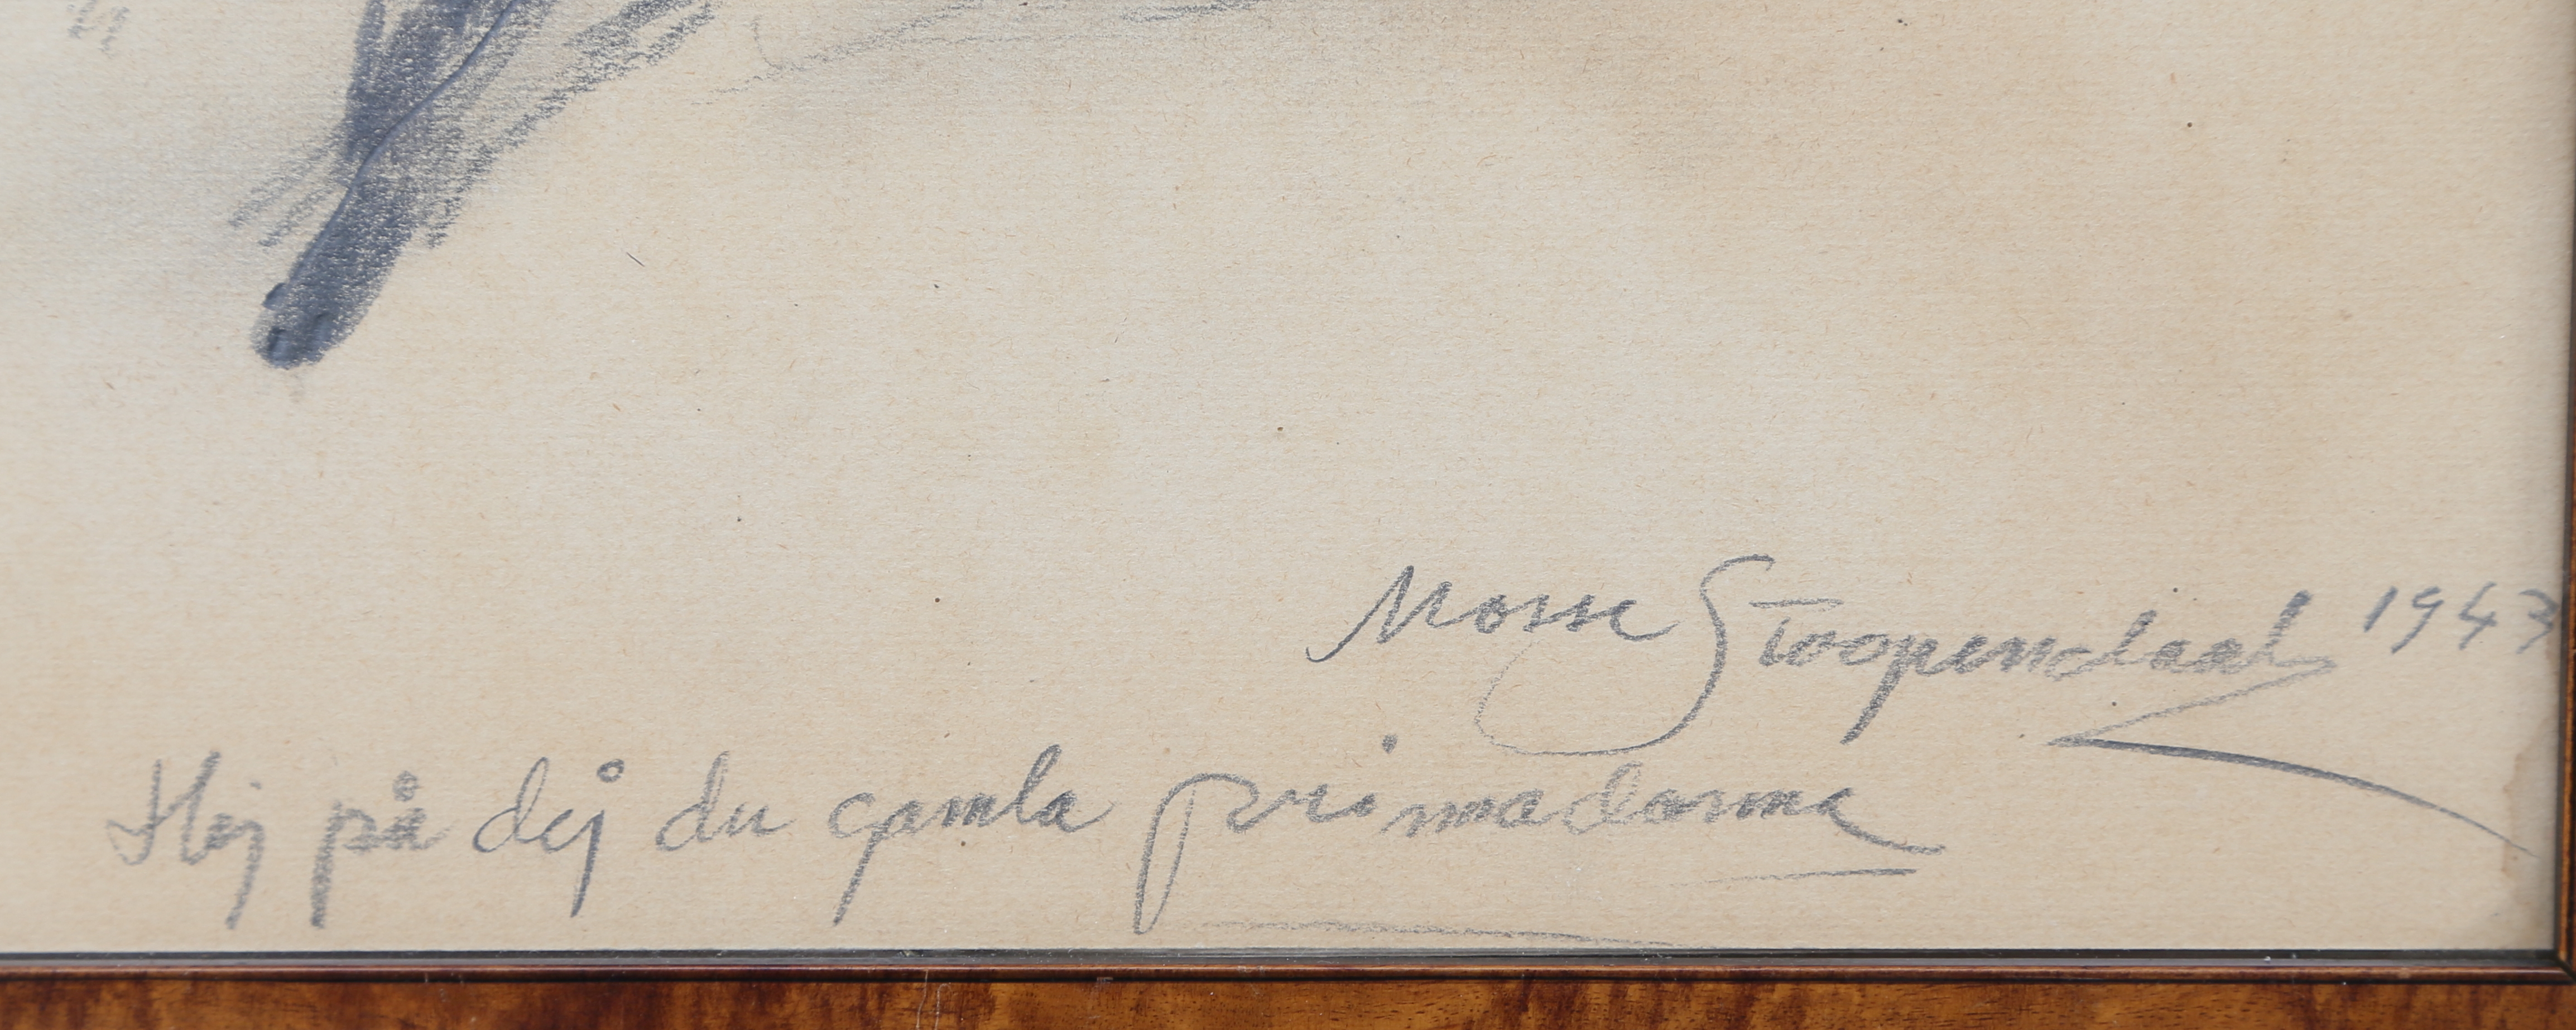 Mosse Stoopendaal 1943
Hej på dej du gamla primadonna